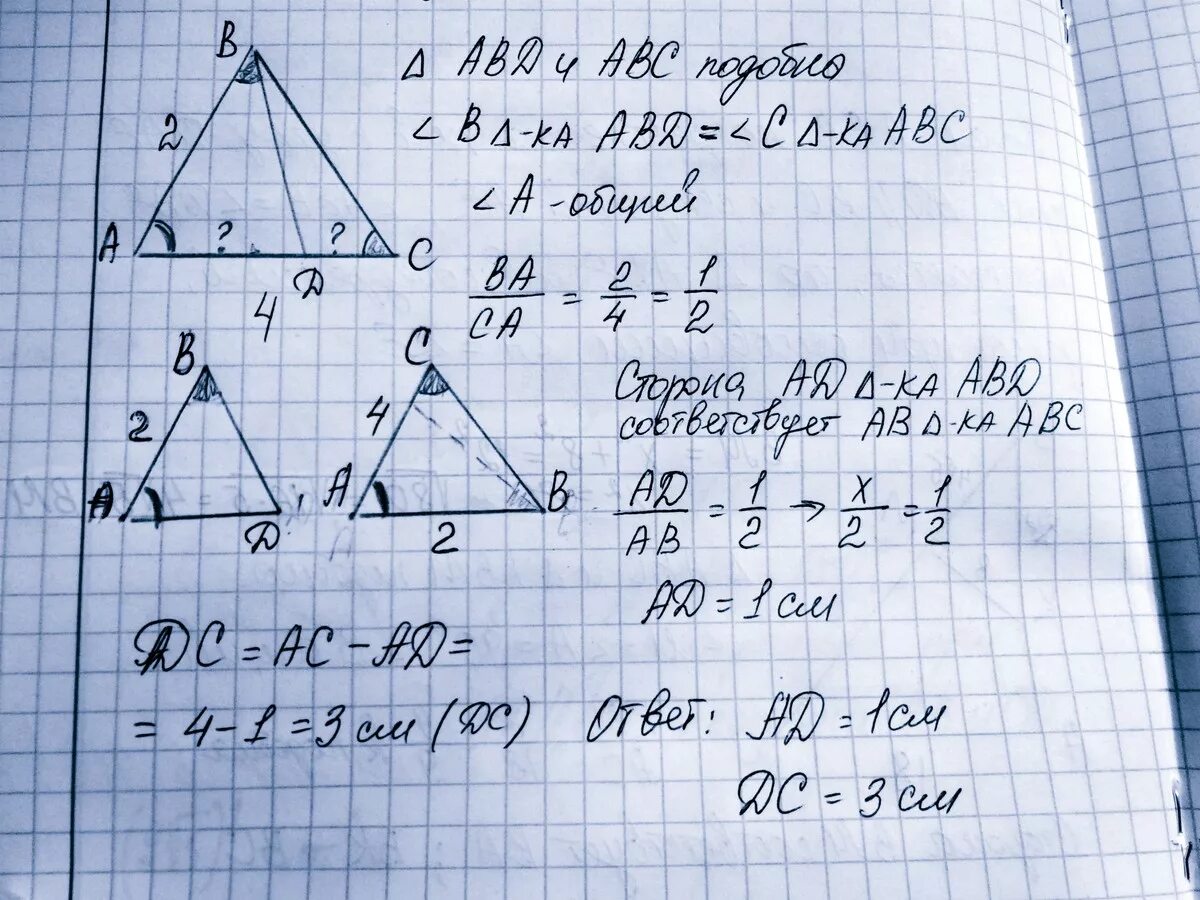 B
Δ ABD и ABC подобно
2
< B Δ-ка ABD = < C Δ-ка ABC
< A - общий
A ? ? C
D
4
BA/CA = 2/4 = 1/2
B
C
2
4
A D , A B
2
Сторона AD Δ-ка ABD
соответствует AB Δ-ка ABC
AD/AB = 1/2 → x/2 = 1/2
AD = 1 см
DC = AC - AD =
= 4 - 1 = 3 см (DC)
Ответ: AD = 1 см
DC = 3 см